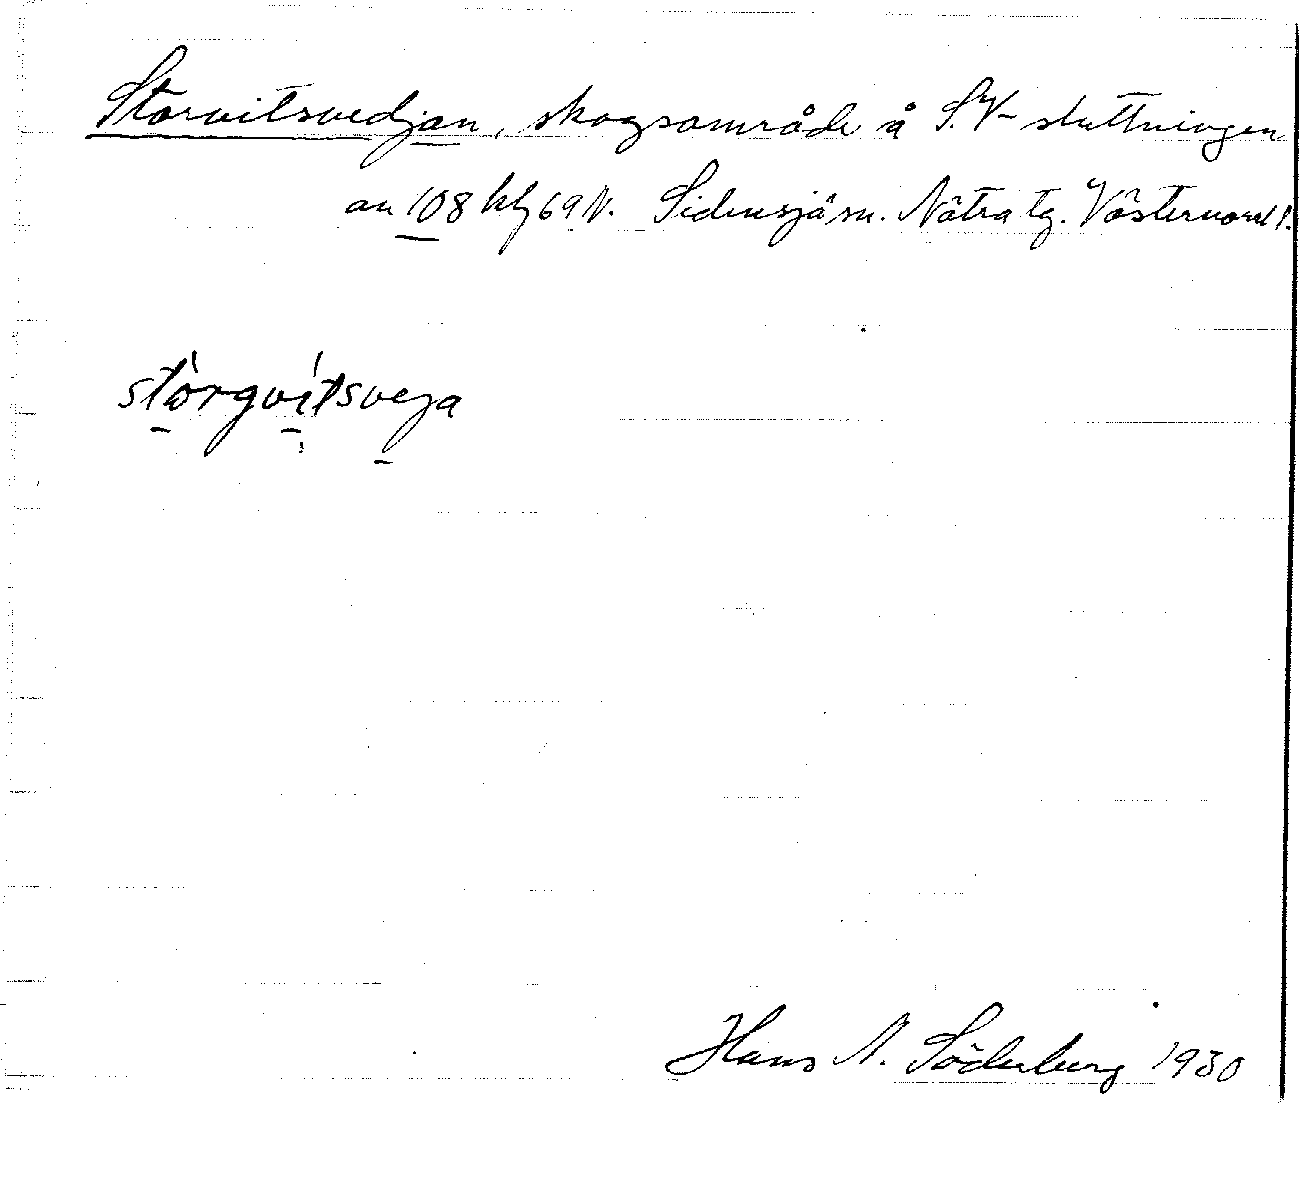 Storvitsvedjan, skogsområde å S.V- sluttningen
av 108 kbl 69 N. Sidensjö sn. Nätra tg. Västernorrl l.
störgvitsveja
Hans N. Söderberg 1930